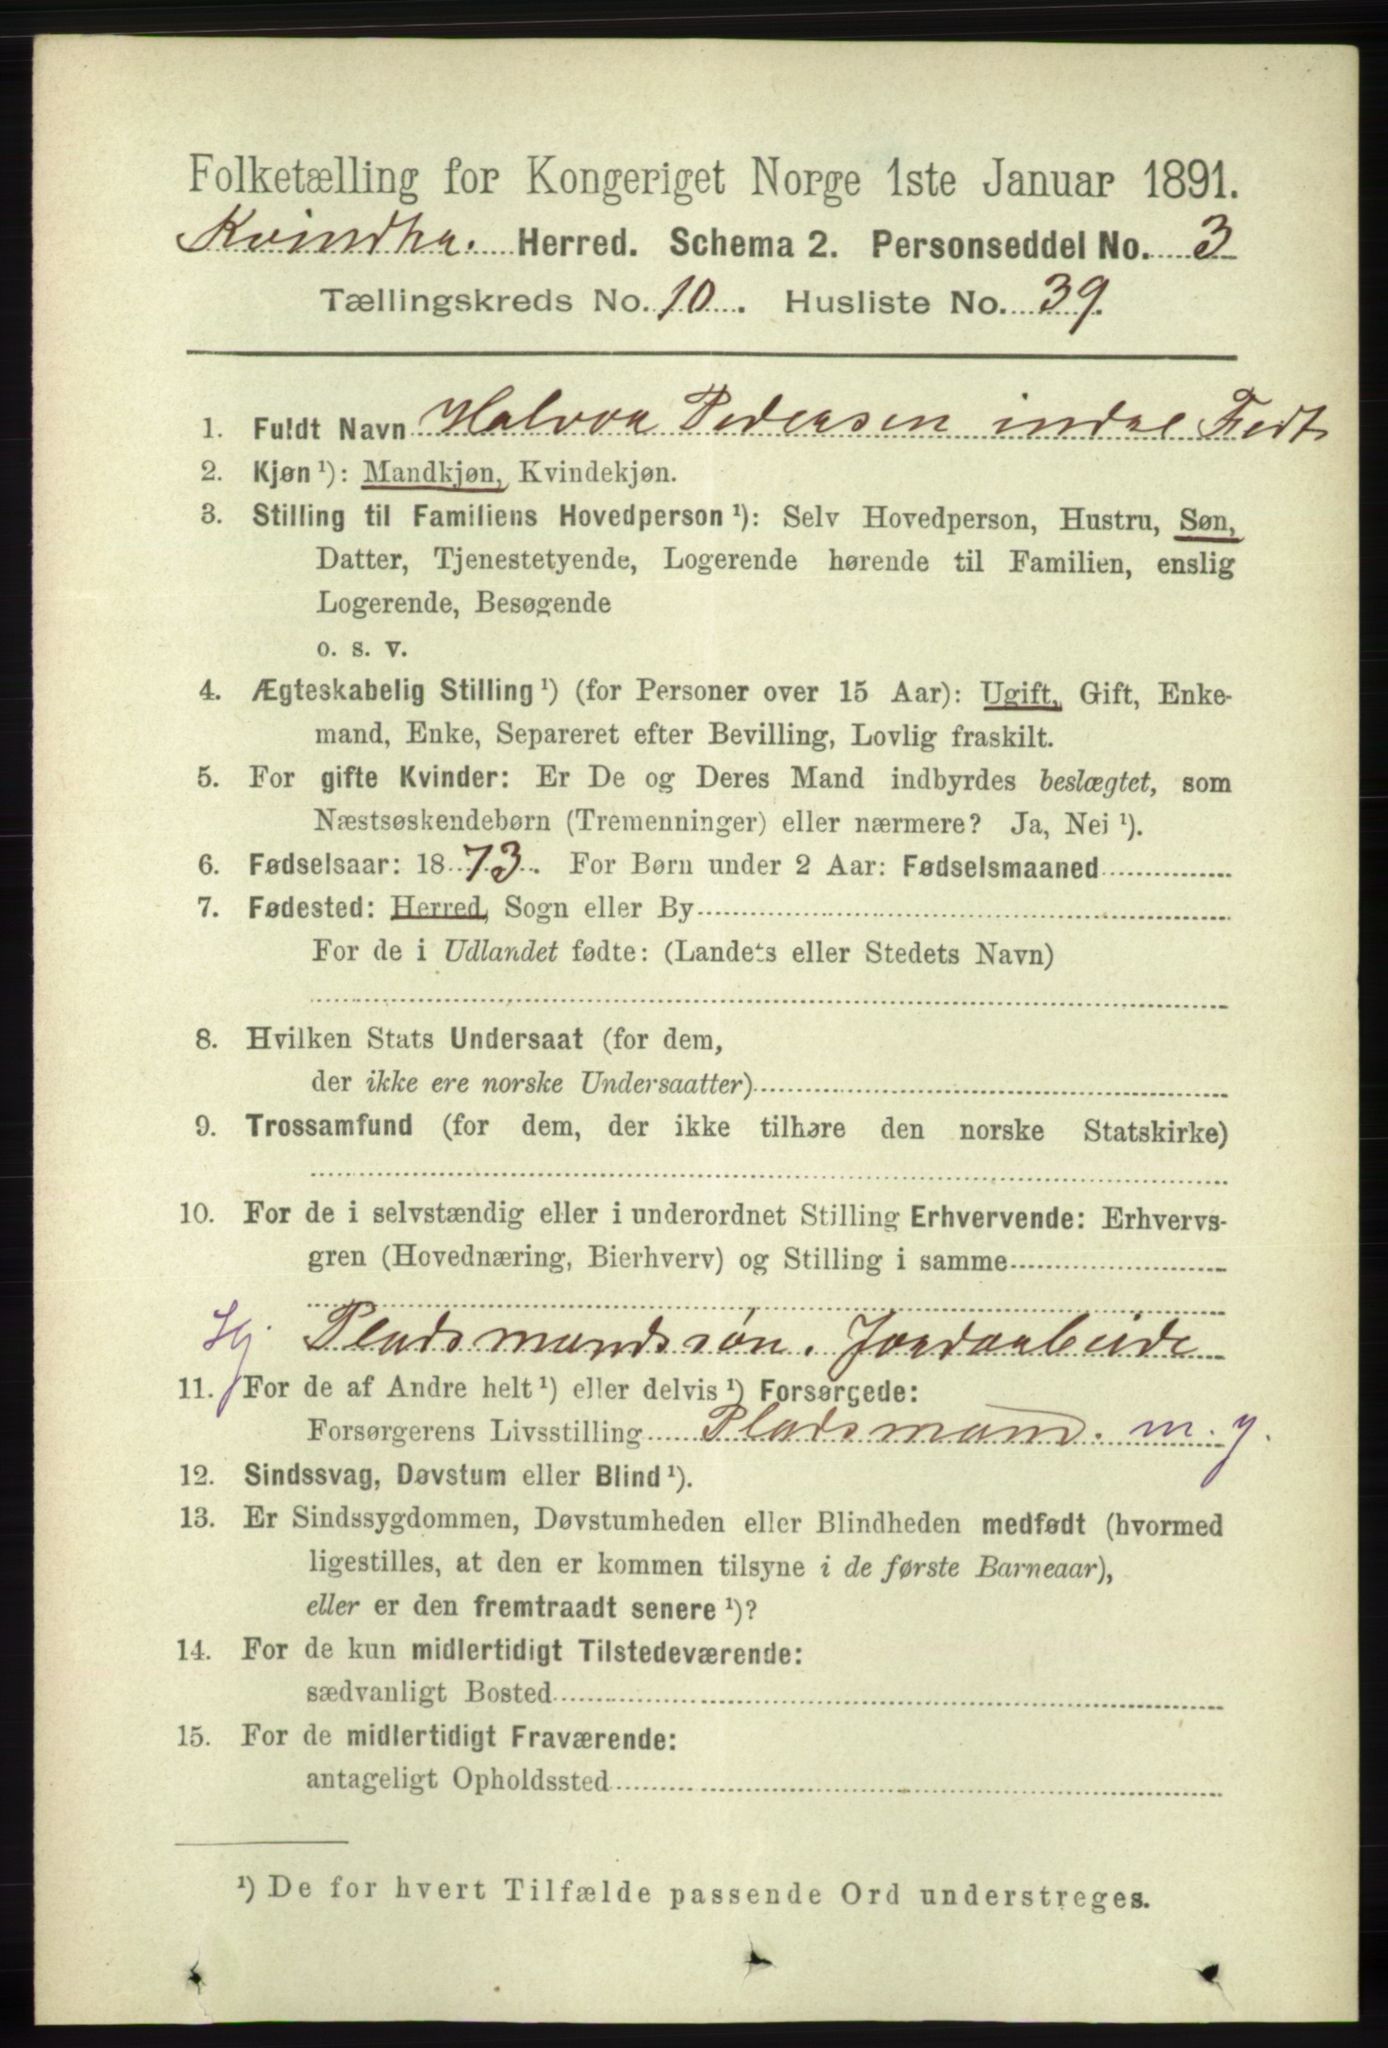 Folketælling for Kongeriget Norge 1ste Januar 1891.
Kvindhr. Herred. Schema 2. Personseddel No. 3
Tællingskreds No. 10. Husliste No. 39.
1. Fuldt Navn Halvor Pedersen indre Fedt
2. Kjøn ¹): Mandkjøn, Kvindekjøn.
3. Stilling til Familiens Hovedperson ¹): Selv Hovedperson, Hustru, Søn,
Datter, Tjenestetyende, Logerende hørende til Familien, enslig
Logerende, Besøgende
o. s. v.
4. Ægteskabelig Stilling ¹) (for Personer over 15 Aar): Ugift, Gift, Enke-
mand, Enke, Separeret efter Bevilling, Lovlig fraskilt.
5. For gifte Kvinder: Er De og Deres Mand indbyrdes beslægtet, som
Næstsøskendebørn (Tremenninger) eller nærmere? Ja, Nei ¹).
6. Fødselsaar: 1873. For Børn under 2 Aar: Fødselsmaaned
7. Fødested: Herred, Sogn eller By
For de i Udlandet fødte: (Landets eller Stedets Navn)
8. Hvilken Stats Undersaat (for dem,
der ikke ere norske Undersaatter)
9. Trossamfund (for dem, der ikke tilhøre den norske Statskirke)
10. For de i selvstændig eller i underordnet Stilling Erhvervende: Erhvervs-
gren (Hovednæring, Bierhverv) og Stilling i samme
Hj. Pladsmandssøn. Jordarbeide
11. For de af Andre helt ¹) eller delvis ¹) Forsørgede:
Forsørgerens Livsstilling Pladsmand. m. j.
12. Sindssvag, Døvstum eller Blind ¹).
13. Er Sindssygdommen, Døvstumheden eller Blindheden medfødt (hvormed
ligestilles, at den er kommen tilsyne i de første Barneaar),
eller er den fremtraadt senere ¹)?
14. For de kun midlertidigt Tilstedeværende:
sædvanligt Bosted
15. For de midlertidigt Fraværende:
antageligt Opholdssted
¹) De for hvert Tilfælde passende Ord understreges.